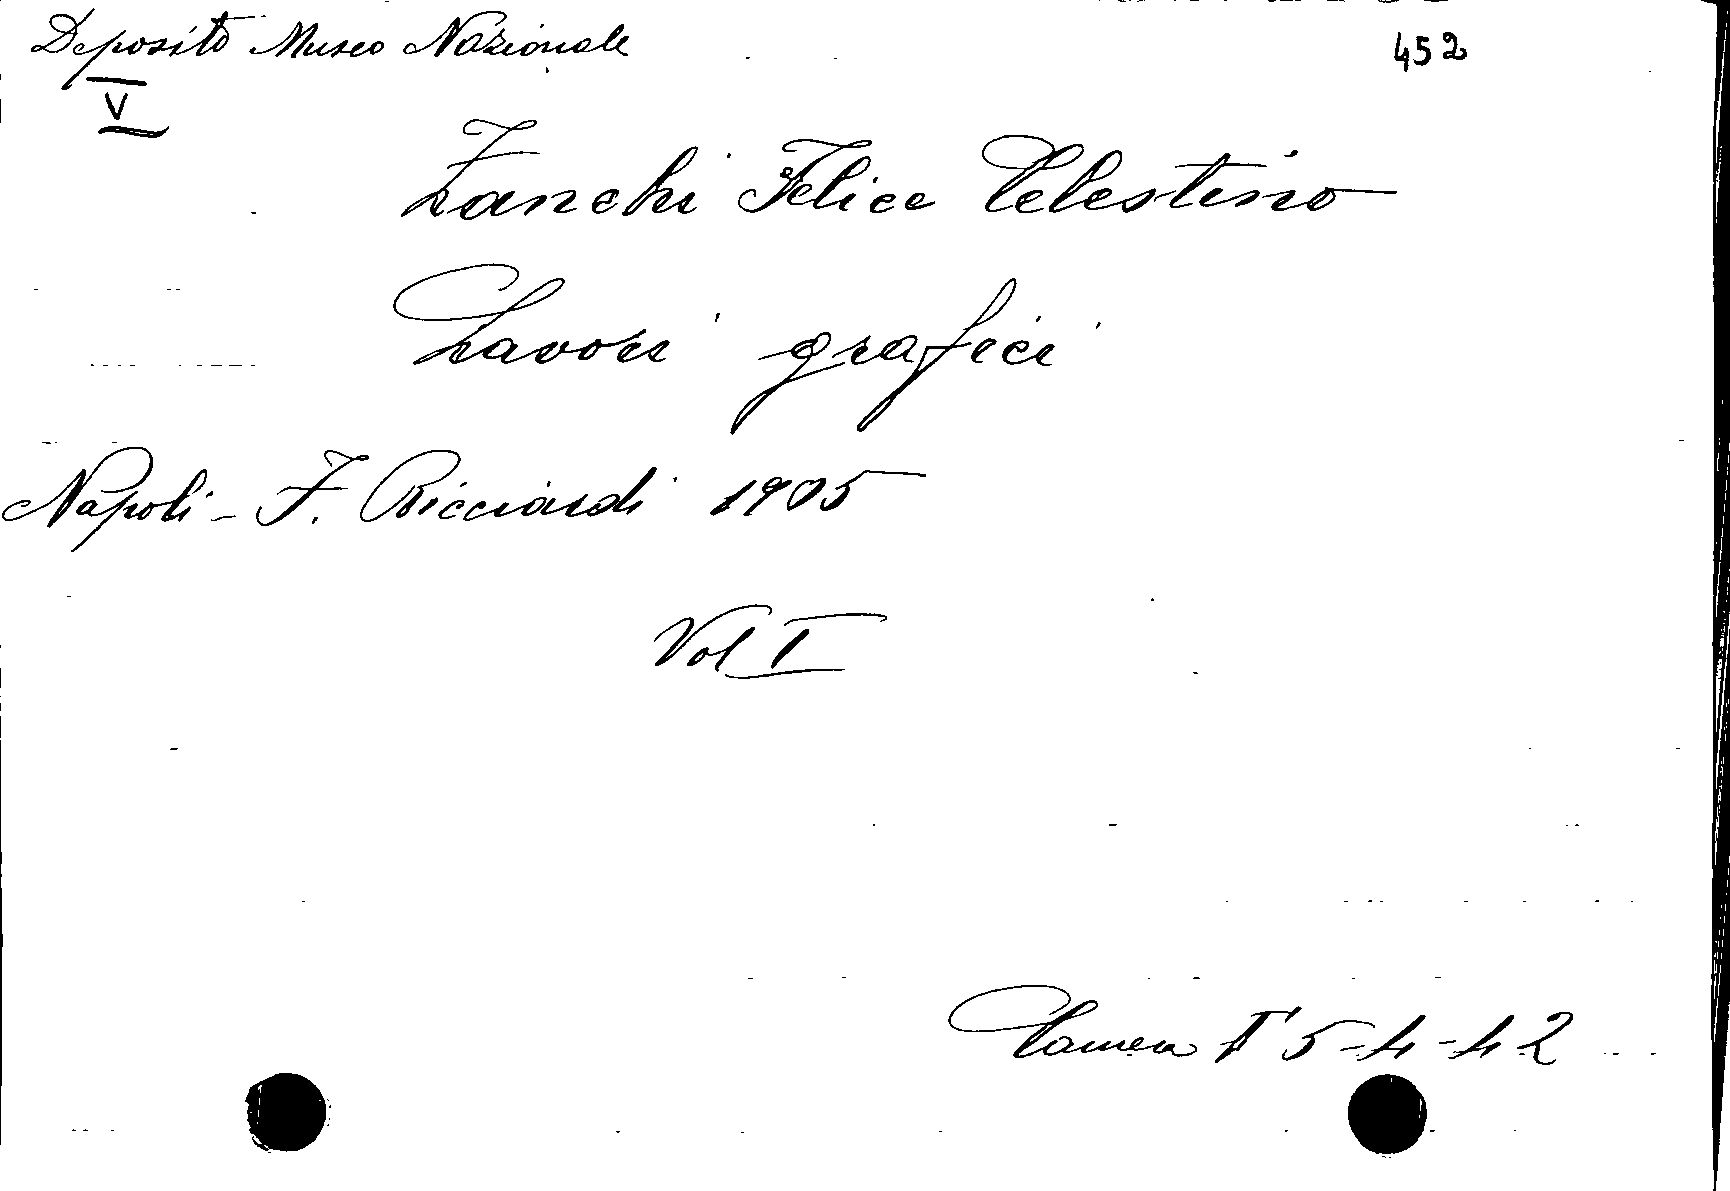 Deposito Museo Nazionale 452
V
Zanchi Felice Celestino
Lavori grafici
Napoli - F. Ricciardi 1905
Vol I
Camera II 5-4-42